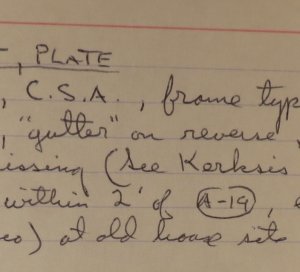 , PLATE
, C.S.A., frame typ
, "gutter" on reverse
issing (See Kerksis
within 2' of A-19,
co) at old house site